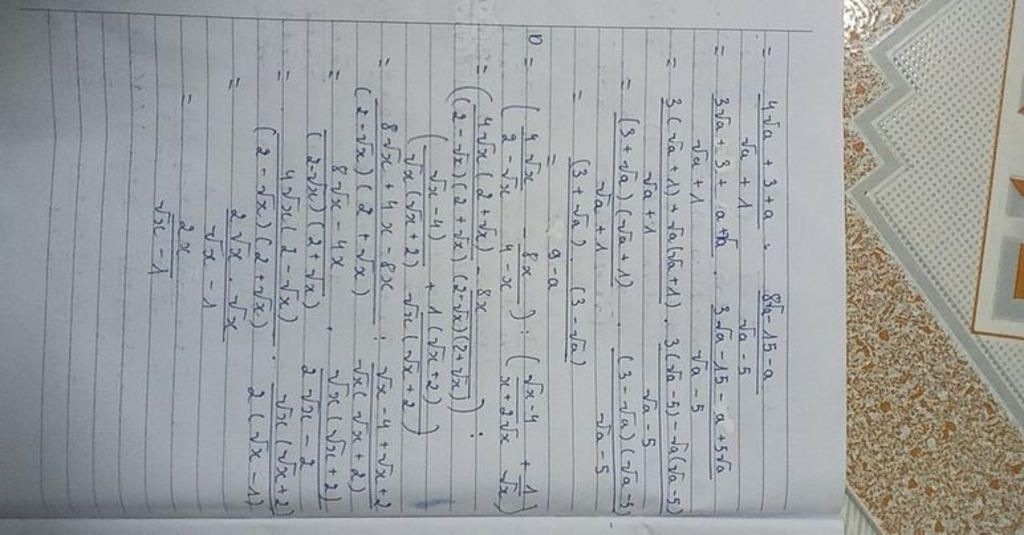 = (4√a + 3 + a)/(√a + 1) . (8√a - 15 - a)/(√a - 5)
= (3√a + 3 + a + √a)/(√a + 1) . (3√a - 15 - a + 5√a)/(√a - 5)
= (3(√a + 1) + √a(√a + 1))/(√a + 1) . (3(√a - 5) - √a(√a - 5))/(√a - 5)
= ((3 + √a)(√a + 1))/(√a + 1) . ((3 - √a)(√a - 5))/(√a - 5)
= (3 + √a) . (3 - √a)
= 9 - a
= (4√x/(2 - √x) - 8x/(4 - x)) : ((√x - 4)/(x + 2√x) + 1/√x)
= (4√x(2 + √x)/((2 - √x)(2 + √x)) - 8x/((2 - √x)(2 + √x))) :
((√x - 4)/(√x(√x + 2)) + 1(√x + 2)/(√x(√x + 2)))
= (8√x + 4x - 8x)/((2 - √x)(2 + √x)) : (√x - 4 + √x + 2)/(√x(√x + 2))
= (8√x - 4x)/((2 - √x)(2 + √x)) . (√x(√x + 2))/(2√x - 2)
= (4√x(2 - √x))/((2 - √x)(2 + √x)) . (√x(√x + 2))/(2(√x - 1))
= (2√x . √x)/(√x - 1)
= 2x/(√x - 1)